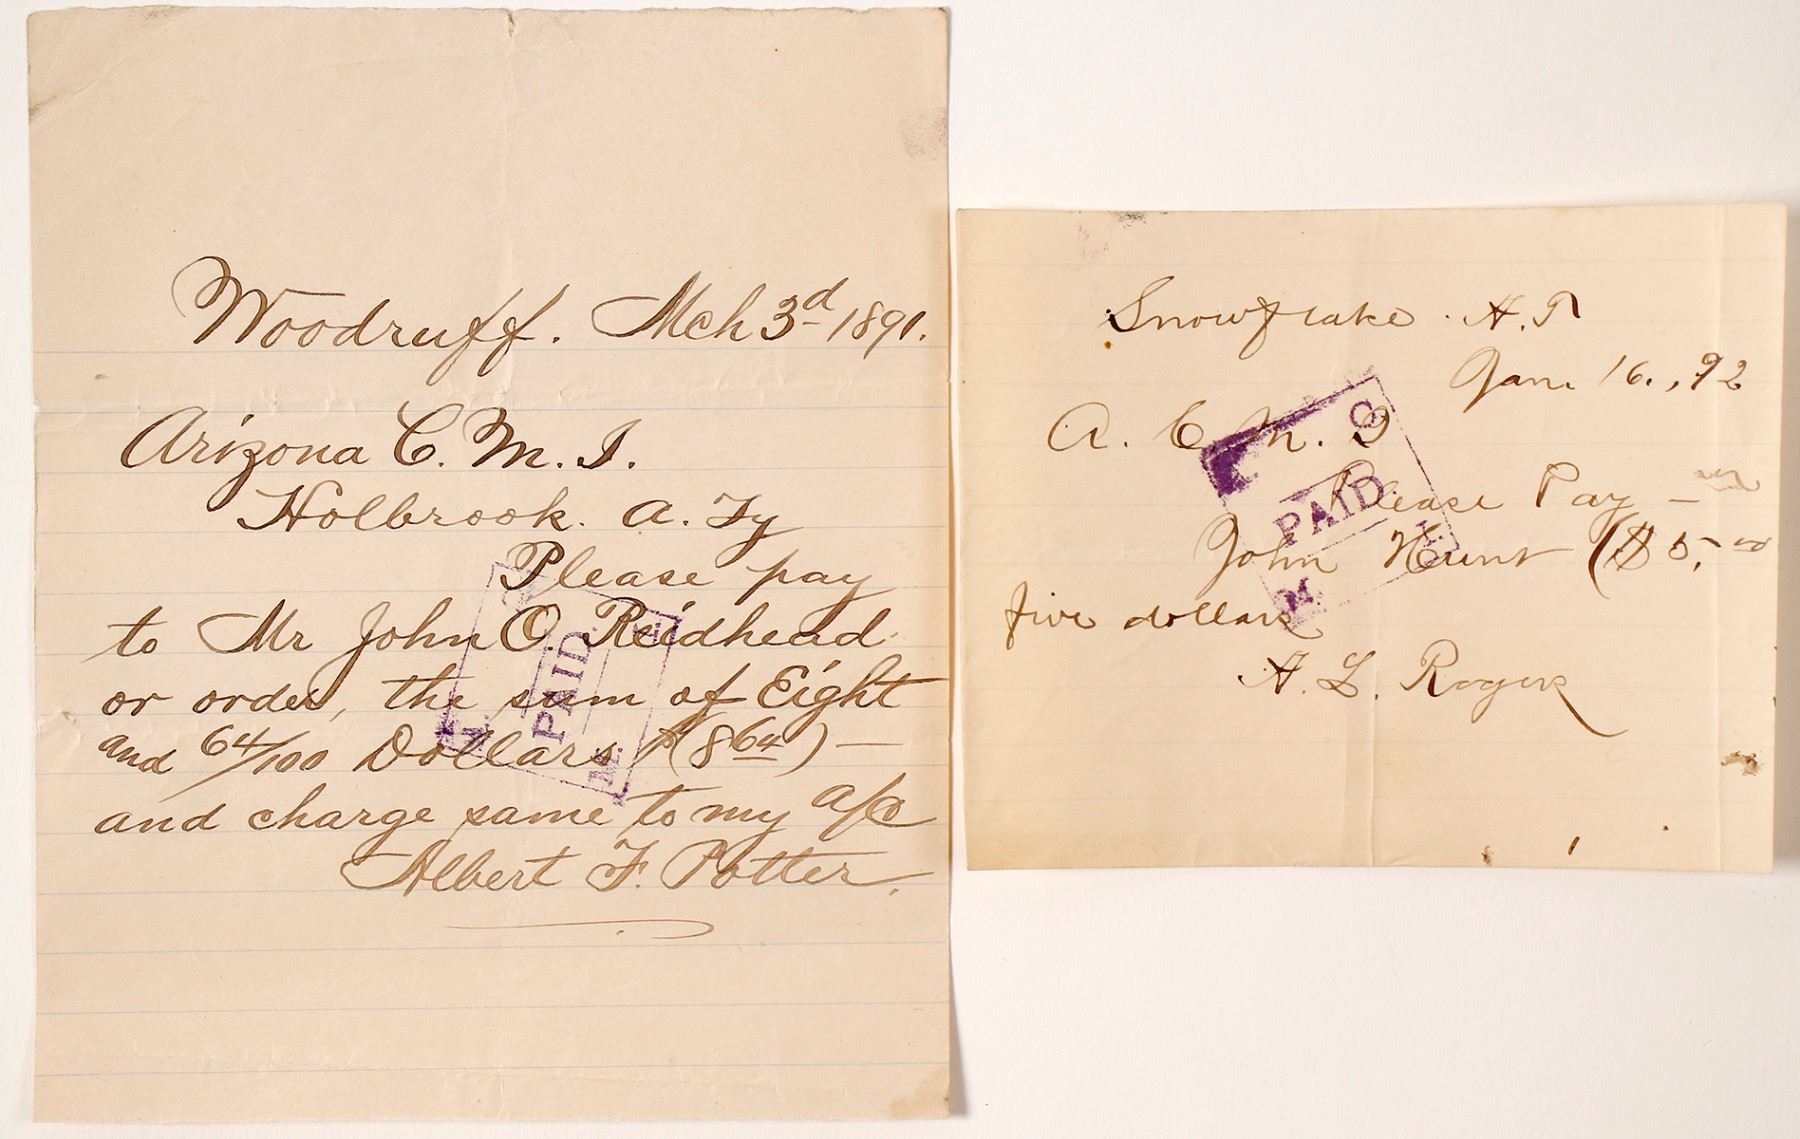 Woodruff. Mch 3d 1891.
Arizona C. M. I.
Holbrook. A. Ty
Please pay
to Mr John O. Reidhead
or order, the sum of Eight
and 64/100 Dollars ($8 64) —
and charge same to my a/c
Albert F. Potter.
A. C. M. I.
PAID
Snowflake. A. T
Jan. 16., 92
A. C. M. I
Please Pay —
John Hunt ($5.00
five dollars
A. L. Rogers
A. C. M. I.
PAID